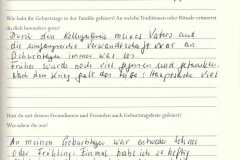 Wie habt Ihr Geburtstage in der Familie gefeiert? An welche Traditionen oder Rituale erinnerst
du dich besonders gern?
Durch den Kollegenkreis meines Vaters und
die umfangreiche Verwandtschaft war an
Geburtstagen immer was los.
Früher wurde noch viel gesungen und getrunken.
Nach dem Krieg galt das viel
Hast du mit deinen Freundinnen und Freunden auch Geburtstagsfeste gefeiert?
Wie sahen die aus?
An meinen Geburtstagen war entweder Schnee
oder Frühling. Einmal habe ich so heftig